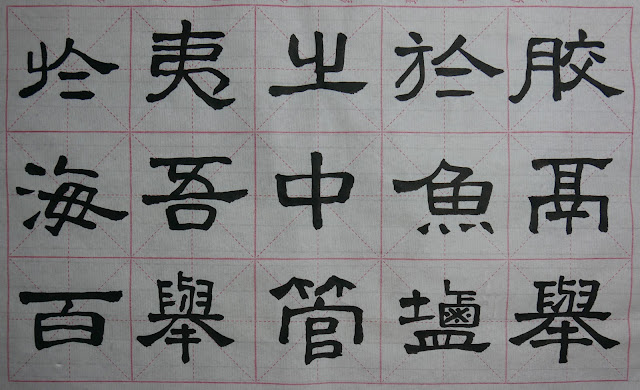 胶鬲舉
於魚鹽
之中管
夷吾舉
於海百